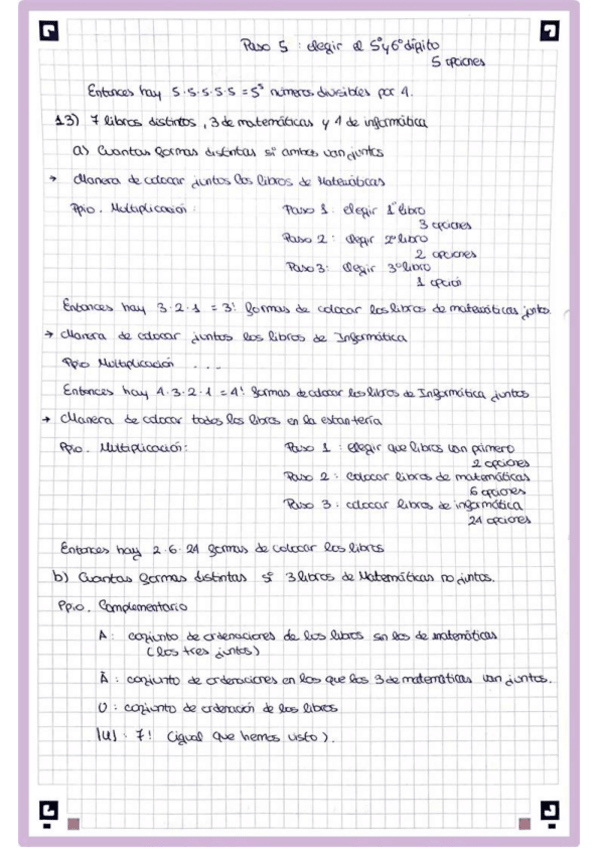 Paso 5 : elegir el 5º y 6º dígito
5 opciones
Entonces hay 5·5·5·5·5 = 5⁵ números divisibles por 4.
13) 7 libros distintos, 3 de matemáticas y 4 de informática
a) Cuantas formas distintas si ambos van juntos
→ Manera de colocar juntos los libros de Matemáticas
Ppio. Multiplicación : Paso 1 : elegir 1º libro
3 opciones
Paso 2 : elegir 2º libro
2 opciones
Paso 3 : elegir 3º libro
1 opción
Entonces hay 3·2·1 = 3! formas de colocar los libros de matemáticas junto
→ Manera de colocar juntos los libros de Informática
Ppio Multiplicación ...
Entonces hay 4·3·2·1 = 4! formas de colocar los libros de Informática juntos
→ Manera de colocar todos los libros en la estantería
Ppio. Multiplicación: Paso 1 : elegir que libros van primero
2 opciones
Paso 2 : colocar libros de matemáticas
6 opciones
Paso 3 : colocar libros de informática
24 opciones
Entonces hay 2·6·24 formas de colocar los libros
b) Cuantas formas distintas si 3 libros de Matemáticas no juntos.
Ppio. Complementario
A : conjunto de ordenaciones de los libros sin los de matemáticas
(los tres juntos)
Ā : conjunto de ordenaciones en los que los 3 de matemáticas van juntos.
U : conjunto de ordenación de los libros
|U| : 7! (igual que hemos visto).